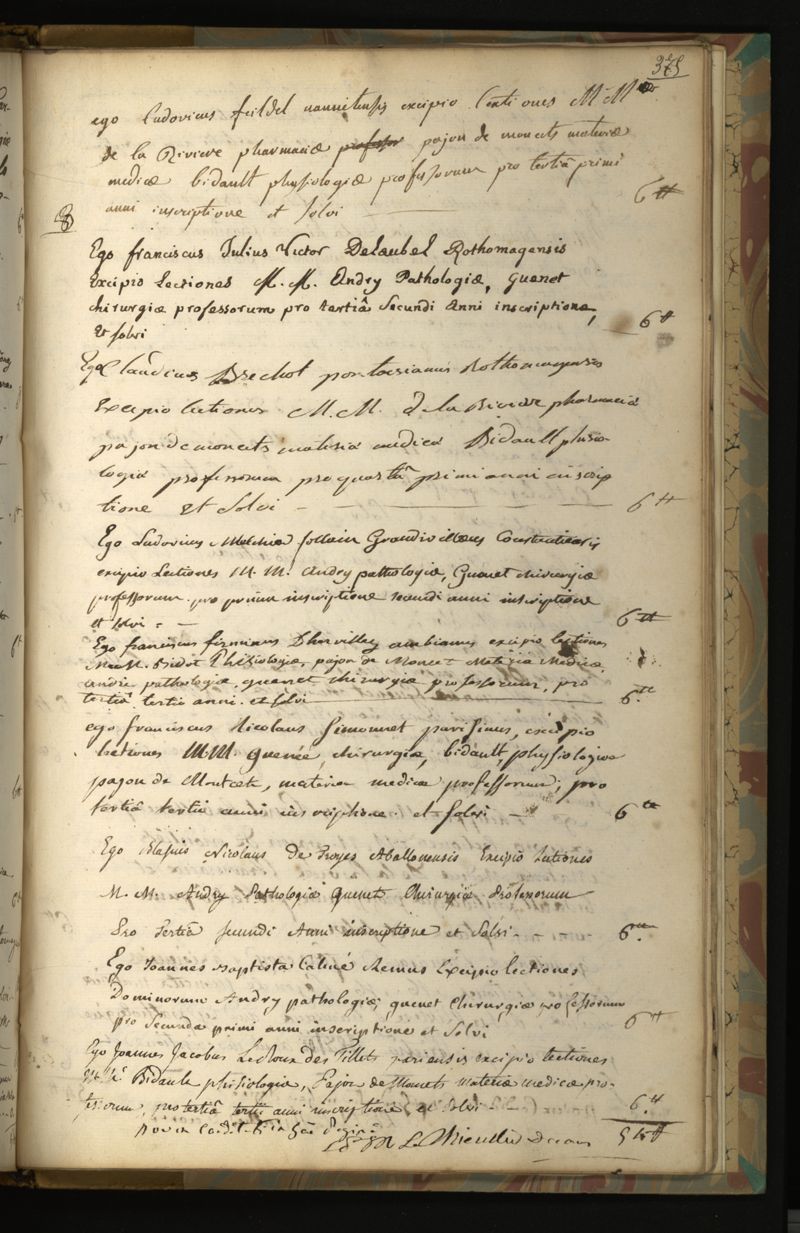 375
ego Ludovicus nannetensis excipio lectiones M M
de la Riviere pharmaciæ professor pajon de moncets materiæ
medicæ bidault physiologiæ professorum pro tertiâ primi
anni inscriptione et solvi 6tt
8
Ego franciscus Julius Victor Delaubel Rothomagensis
Excipio Lectiones M. M. Andry Pathologiæ, Guenet
chirurgiæ professorum pro tertiâ Secundi Anni inscriptione,
Et solvi 6tt
Ego Claudius Brechot pontæsianus Rothomagensis
Excipio lectiones M. M. de la Riviere pharmaciæ
pajon de moncets materiæ medicæ Bidault phisio-
logiæ professorum pro quartâ primi anni inscrip
tione et Solvi 6tt
Ego Ludovicus follain Grandivillæus Constantiensis
excipio Lectiones M. M. Andry pathologiæ, Guenet chirurgiæ
professorum pro primâ inscriptione secundi anni inscriptione
et solvi 6tt
Ego franciscus firminus Dhervillez ambianus excipio lectiones
M. Bidot Phisiologiæ, pajon de Moncet Materiæ Medicæ
andrie pathologiæ, guenet chirurgiæ professorum, pro
tertiâ tertii anni et solvi 6tt
ego franciscus Nicolaus Simonnet parisinus, excipio
lectiones MM. Guenée, chirurgiæ, bidault, physiologiæ
pajon de Montcets, materiæ medicæ professorum, pro
tertiâ tertii anni inscriptione et solvi 6tt
Ego Blasius Nicolaus De Troyes Aballonensis Excipio Lectiones
M. M. Andry Pathologiæ Guenet Chirurgiæ Professorum
Pro Tertiâ secundi Anni inscriptione et Solvi 6tt
Ego Joannes Baptista Calmé Remus Excipio lectiones
Dominorum Andry pathologiæ, guenet Chirurgiæ professorum
pro Secunda primi anni inscriptione et Solvi 6tt
Ego Joannes Jacobus LeRoux des Tillets parisiensis excipio lectiones
Bidault phisiologiæ, Pajon de Moncets materiæ medicæ pro-
fessorum, pro tertiâ tertii anni inscriptione et solvi 6tt
Le Thieullier Decanus 54tt